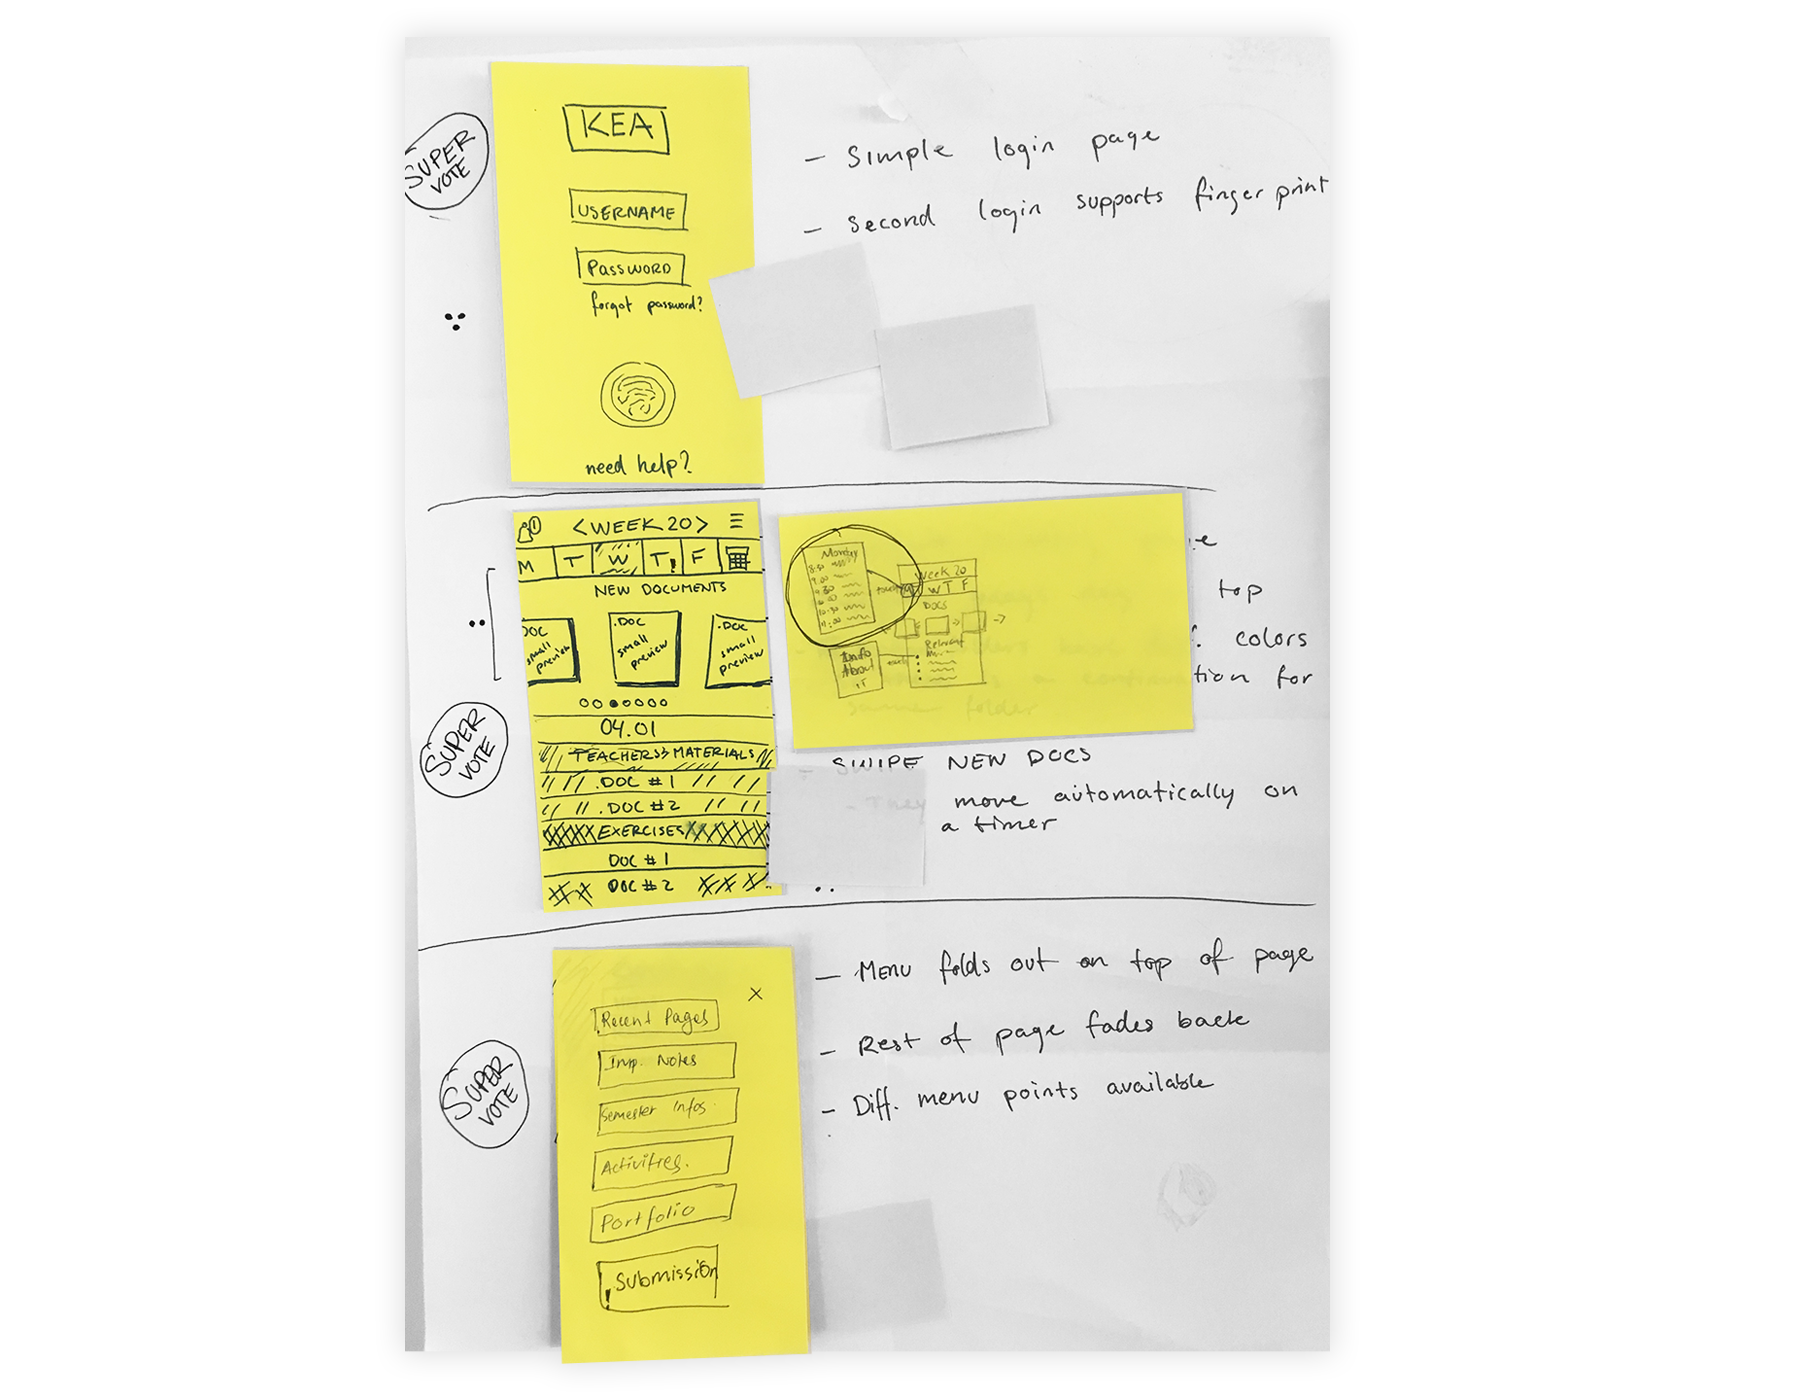 SUPER
VOTE
KEA
USERNAME
PASSWORD
forgot password?
need help?
- Simple login page
- Second login supports finger print
< WEEK 20 >
M T W T F
NEW DOCUMENTS
DOC
small
preview
.DOC
small
preview
.DOC
small
preview
04.01
TEACHERS MATERIALS
.DOC #1
.DOC #2
EXERCISES
DOC #1
DOC #2
Monday
8:30
9.00
9.30
10:30
11:00
Week 20
W T F
DOCS
Relevant
Info
About
IT
top
colors
tion for
same folder
SUPER
VOTE
- SWIPE NEW DOCS
- They move automatically on
a timer
SUPER
VOTE
X
Recent Pages
Imp. Notes
Semester infos.
Activities.
Portfolio
Submission
- Menu folds out on top of page
- Rest of page fades back
- Diff. menu points available